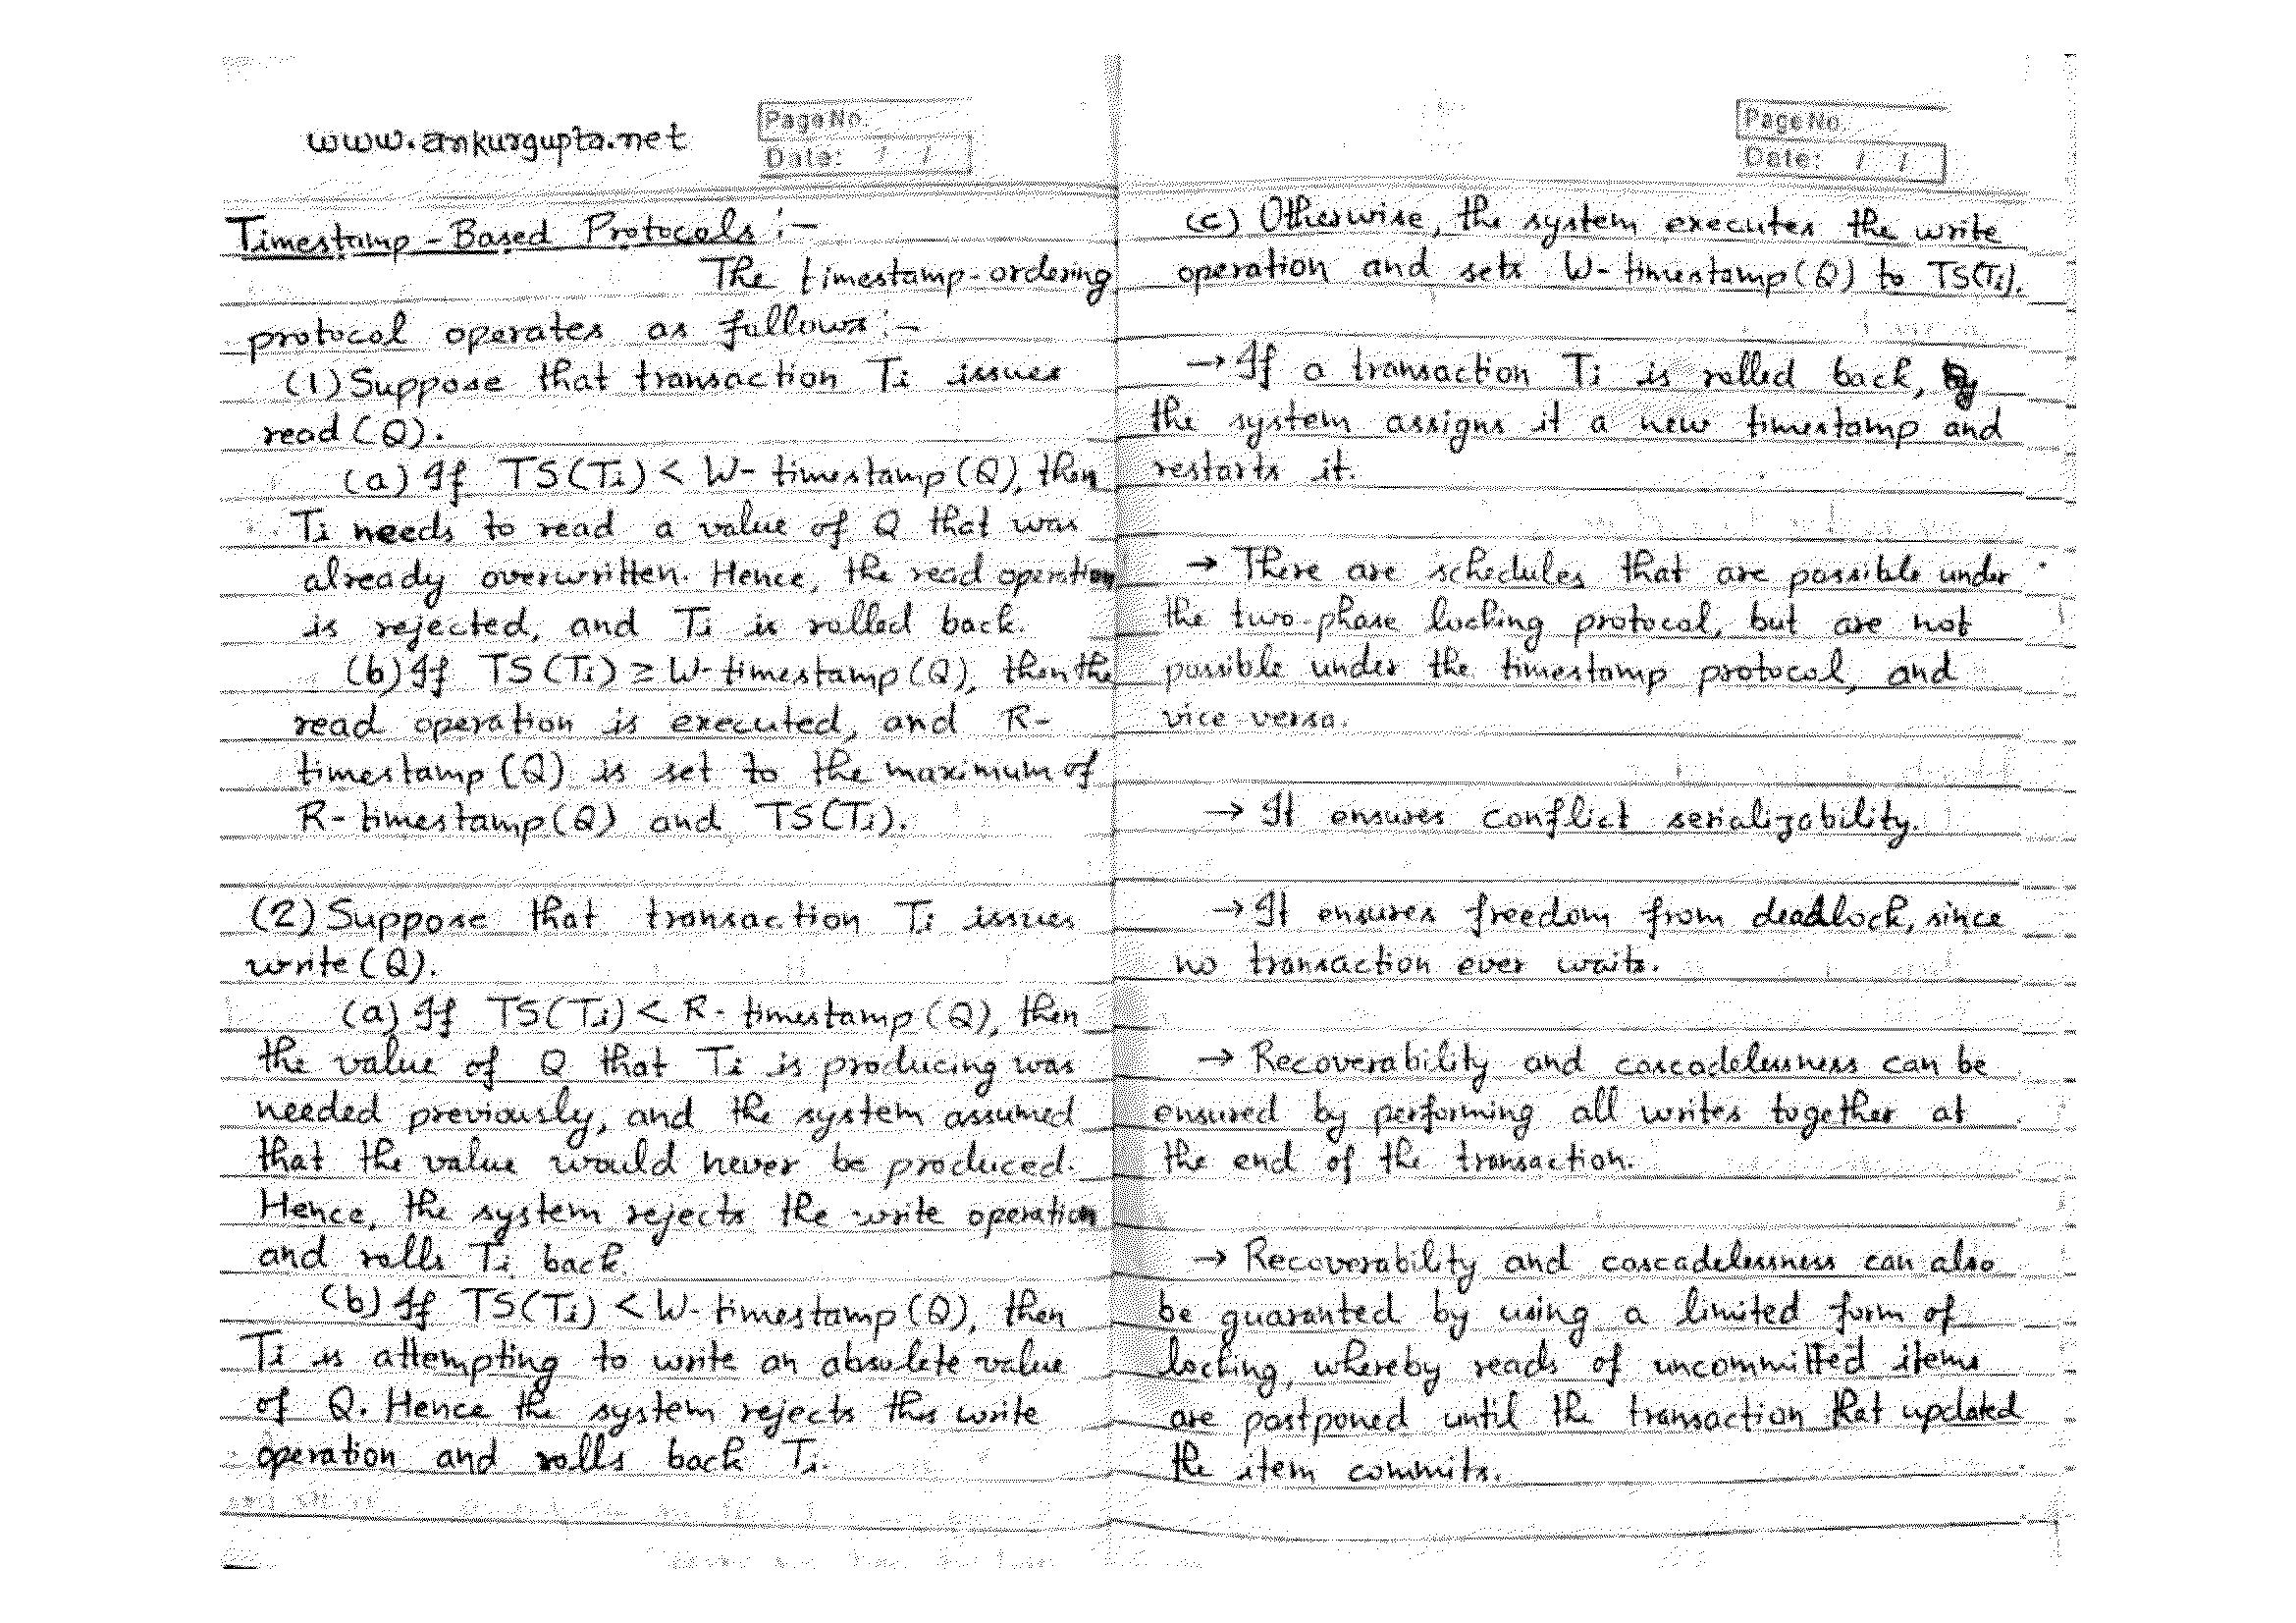 www.ankurgupta.net
Page No.
Date: / /
Timestamp-Based Protocols :-
The timestamp-ordering
protocol operates as follows:-
(1) Suppose that transaction Ti issues
read (Q).
(a) If TS(Ti) < W-timestamp(Q), then
Ti needs to read a value of Q that was
already overwritten. Hence, the read operation
is rejected, and Ti is rolled back.
(b) If TS(Ti) ≥ W-timestamp(Q), then the
read operation is executed, and R-
timestamp(Q) is set to the maximum of
R-timestamp(Q) and TS(Ti).
(2) Suppose that transaction Ti issues
write (Q).
(a) If TS(Ti) < R-timestamp(Q), then
the value of Q that Ti is producing was
needed previously, and the system assumed
that the value would never be produced.
Hence, the system rejects the write operation
and rolls Ti back.
(b) If TS(Ti) < W-timestamp(Q), then
Ti is attempting to write an absolete value
of Q. Hence the system rejects this write
operation and rolls back Ti.
Page No.
Date: / /
(c) Otherwise, the system executes the write
operation and sets W-timestamp(Q) to TS(Ti).
→ If a transaction Ti is rolled back,
the system assigns it a new timestamp and
restarts it.
→ There are schedules that are possible under
the two-phase locking protocol, but are not
possible under the timestamp protocol, and
vice versa.
→ It ensures conflict serializability.
→ It ensures freedom from deadlock, since
no transaction ever waits.
→ Recoverability and cascadelessness can be
ensured by performing all writes together at
the end of the transaction.
→ Recoverability and cascadelessness can also
be guaranted by using a limited form of
locking, whereby reads of uncommitted items
are postponed until the transaction that updated
the item commits.